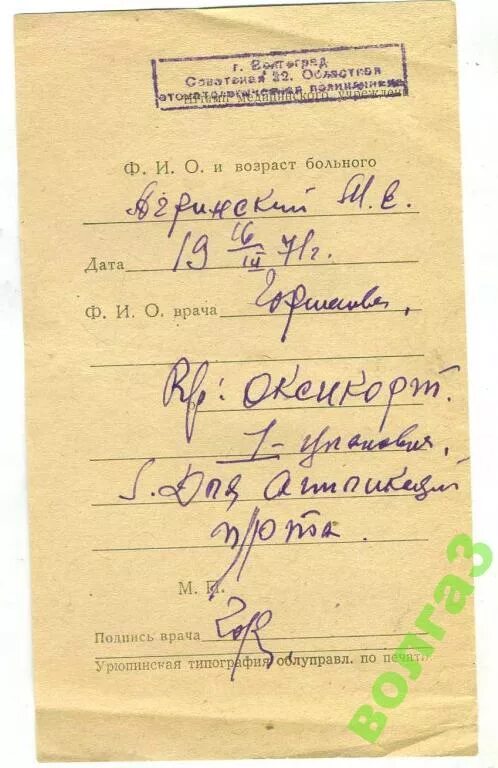 г. Волгоград
Советская 32. Областная
стоматологическая поликлиника
Штамп медицинского учрежден
Ф. И. О. и возраст больного
М. Е.
Дата 19 16/III 71г.
Ф. И. О. врача Горшкова,
Rp: Оксикорт.
1 - упаковка,
S. Для аппликаций
п/рта.
М. П.
Подпись врача
Урюпинская типография облуправл. по печати
волгаЗ